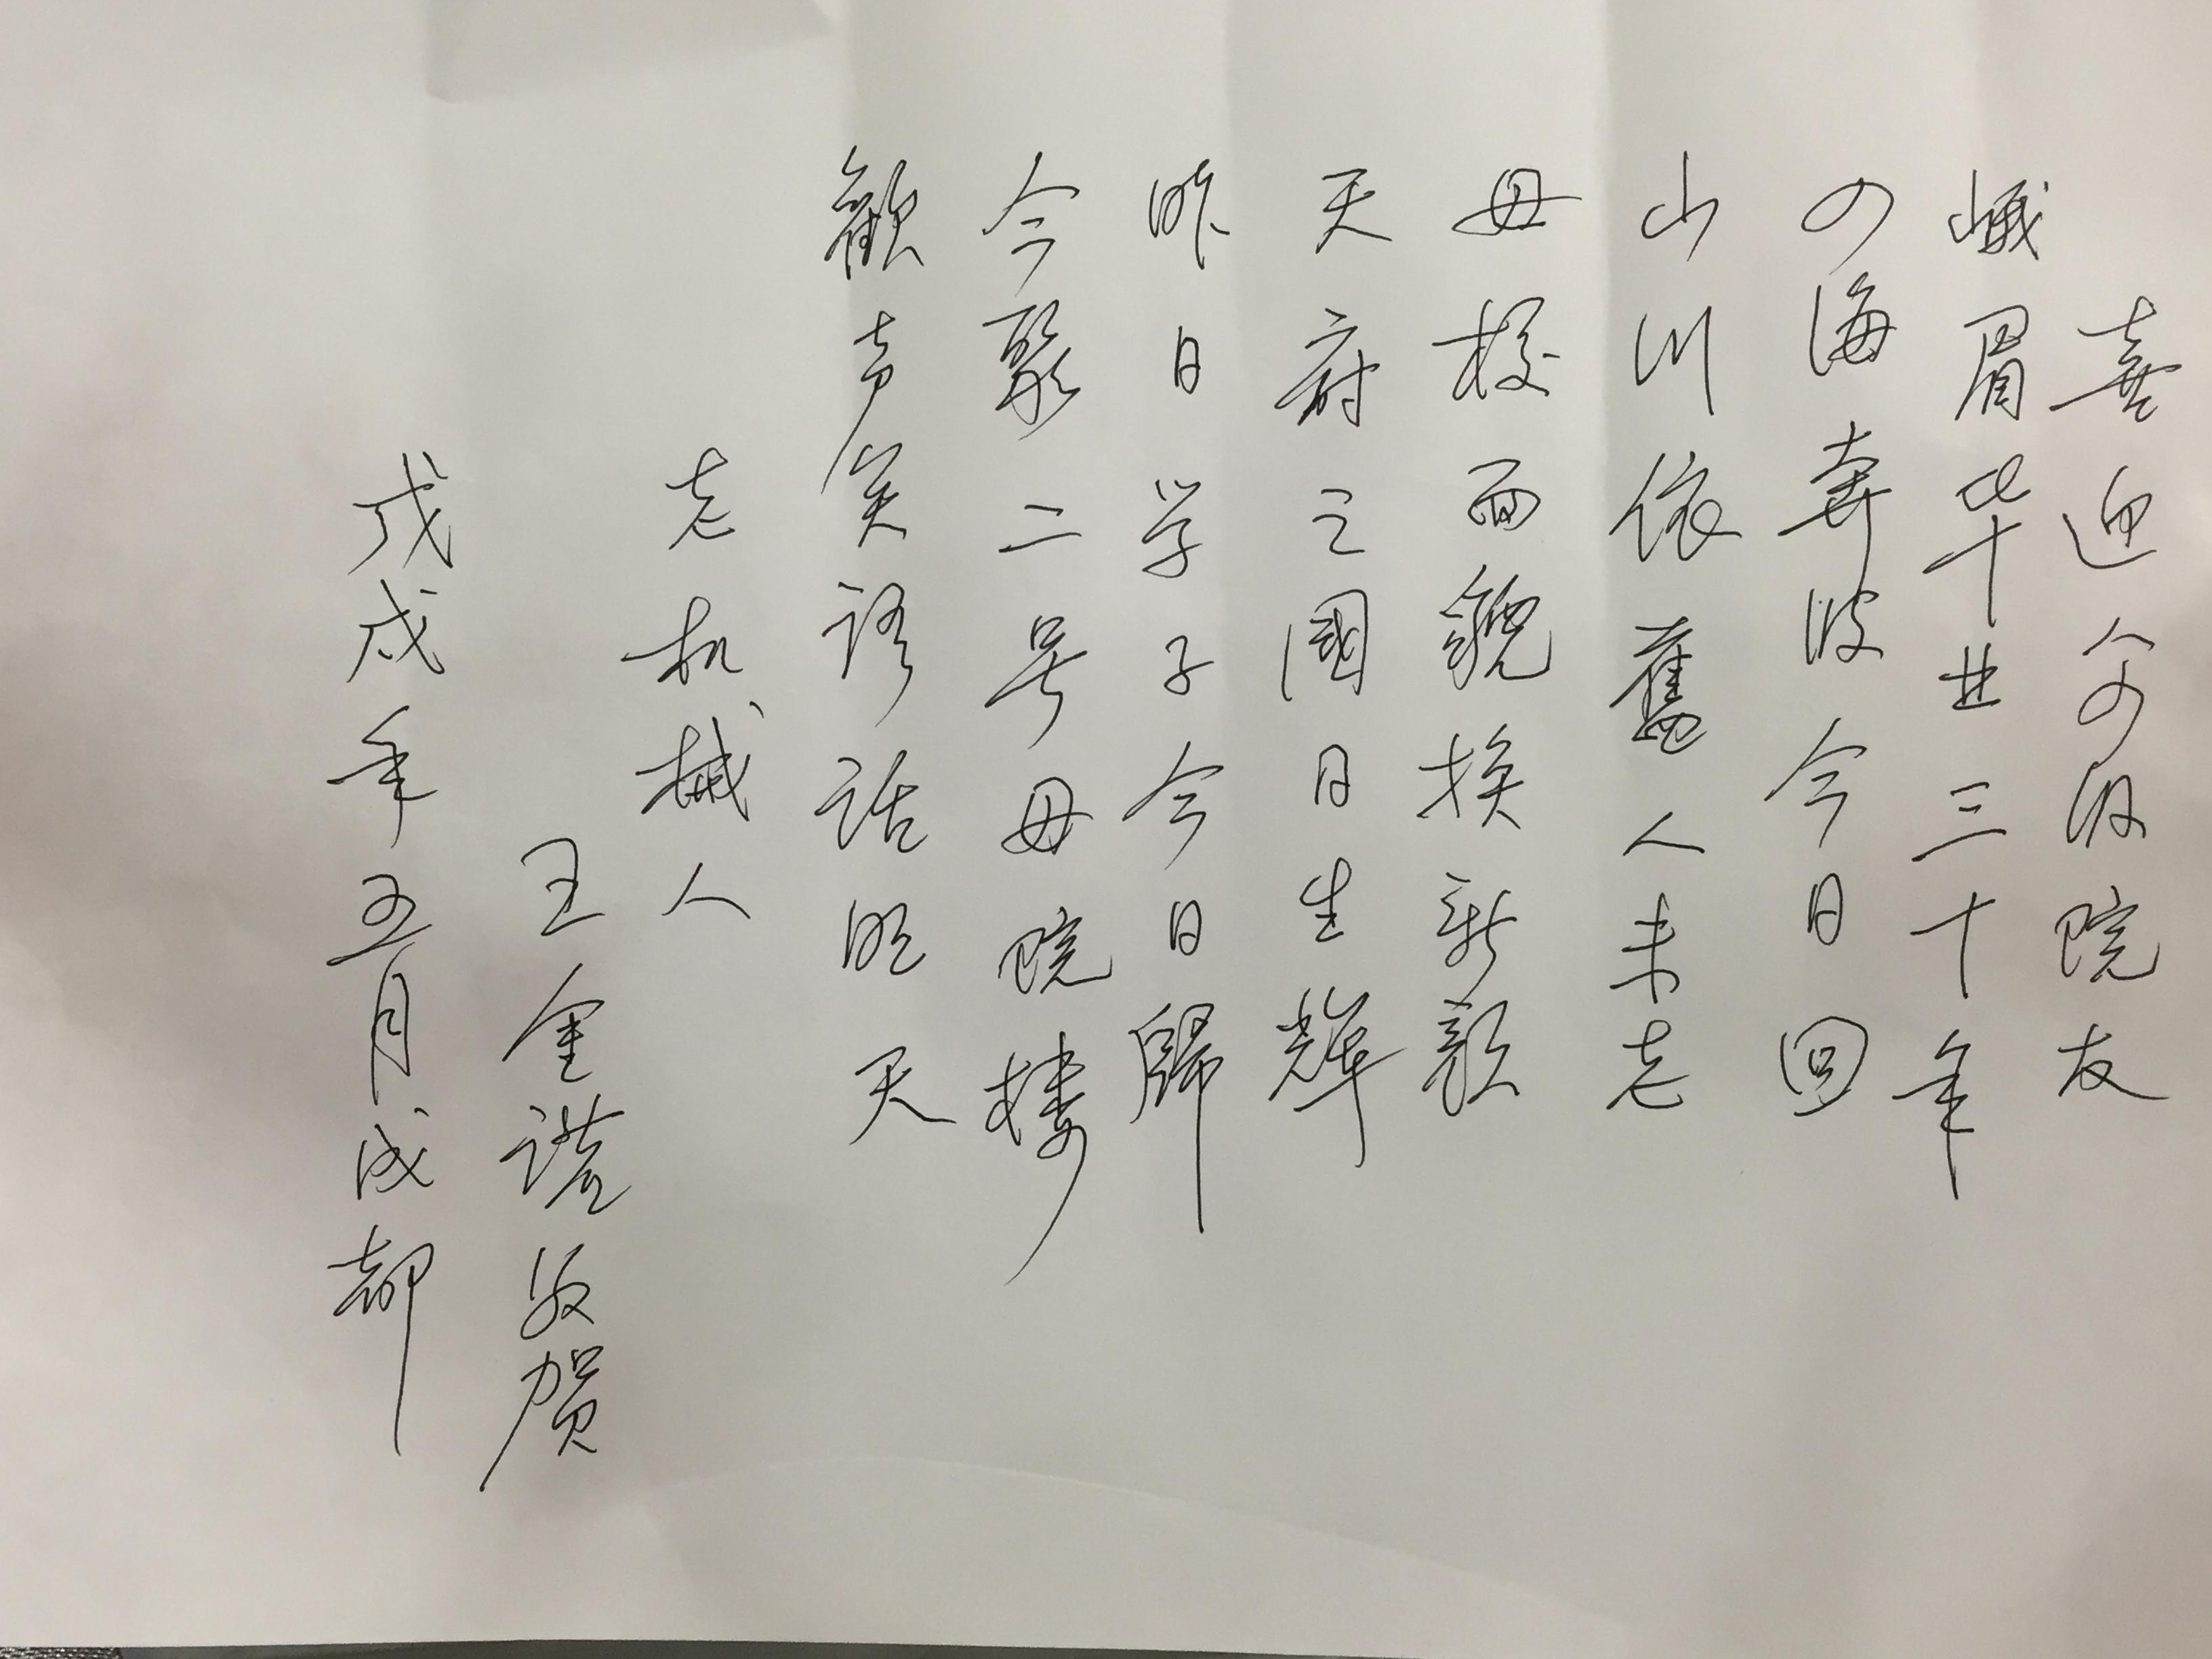 喜迎八四级院友
峨眉毕业三十年
四海奔波今日回
山川依舊人未老
母校面貌换新颜
天府之國日生輝
昨日学子今日歸
今聚二号母院楼
歡声笑语话明天
老机械人
王金诺敬贺
戊戌年五月成都